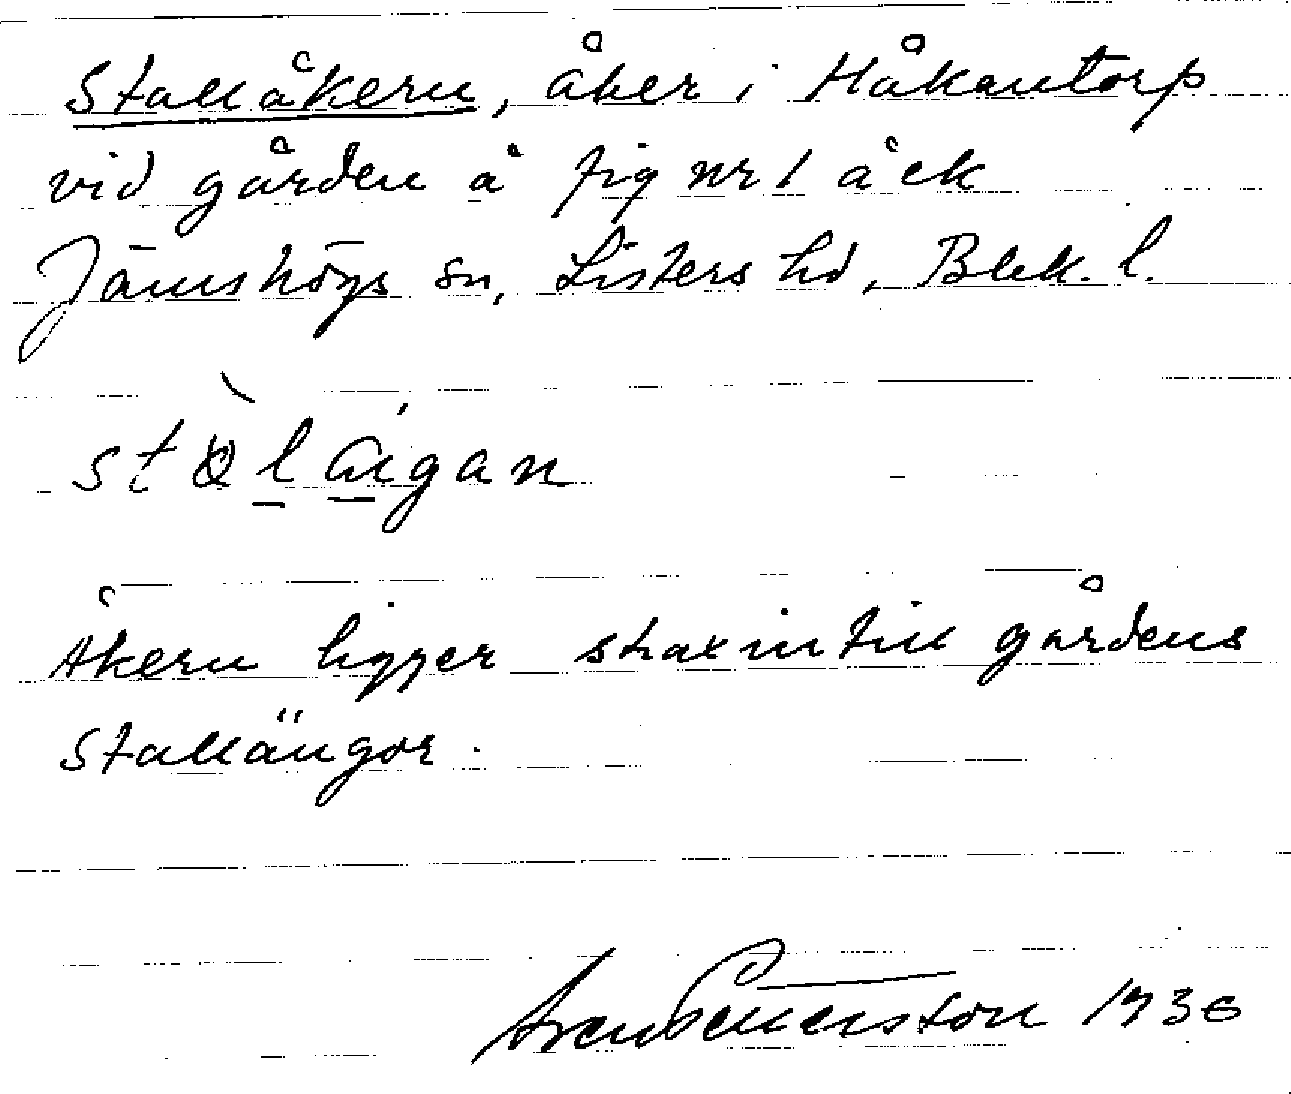 Stallåkern, åker i Håkantorp
vid gården å fig nr 1 å ek
Jämshögs sn, Listers hd, Blek. l.
åkern ligger strax intill gårdens
stallängor.
1936